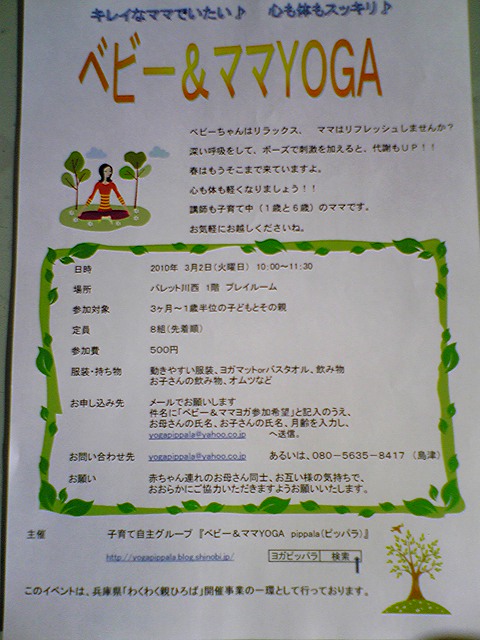 キレイなママでいたい♪　心も体もスッキリ♪
ベビー＆ママYOGA
ベビーちゃんはリラックス、　ママはリフレッシュしませんか？
深い呼吸をして、ポーズで刺激を加えると、代謝もＵＰ！！
春はもうそこまで来ていますよ。
心も体も軽くなりましょう！！
講師も子育て中（１歳と６歳）のママです。
お気軽にお越しくださいね。
日時　2010年　3月2日（火曜日）　10:00～11:30
場所　パレット川西　1階　プレイルーム
参加対象　３ヶ月～１歳半位の子どもとその親
定員　８組（先着順）
参加費　５００円
服装・持ち物　動きやすい服装、ヨガマットorバスタオル、飲み物
お子さんの飲み物、オムツなど
お申し込み先　メールでお願いします
件名に「ベビー＆ママヨガ参加希望」と記入のうえ、
お母さんの氏名、お子さんの氏名、月齢を入力し、
yogapippala@yahoo.co.jp　へ送信。
お問い合わせ先　yogapippala@yahoo.co.jp　あるいは、０８０－５６３５－８４１７　（島津）
お願い　赤ちゃん連れのお母さん同士、お互い様の気持ちで、
おおらかにご協力いただきますようお願いいたします。
主催　子育て自主グループ　『ベビー＆ママYOGA　pippala（ピッパラ）』
http://yogapippala.blog.shinobi.jp/　ヨガピッパラ　検索
このイベントは、兵庫県「わくわく親ひろば」開催事業の一環として行っております。